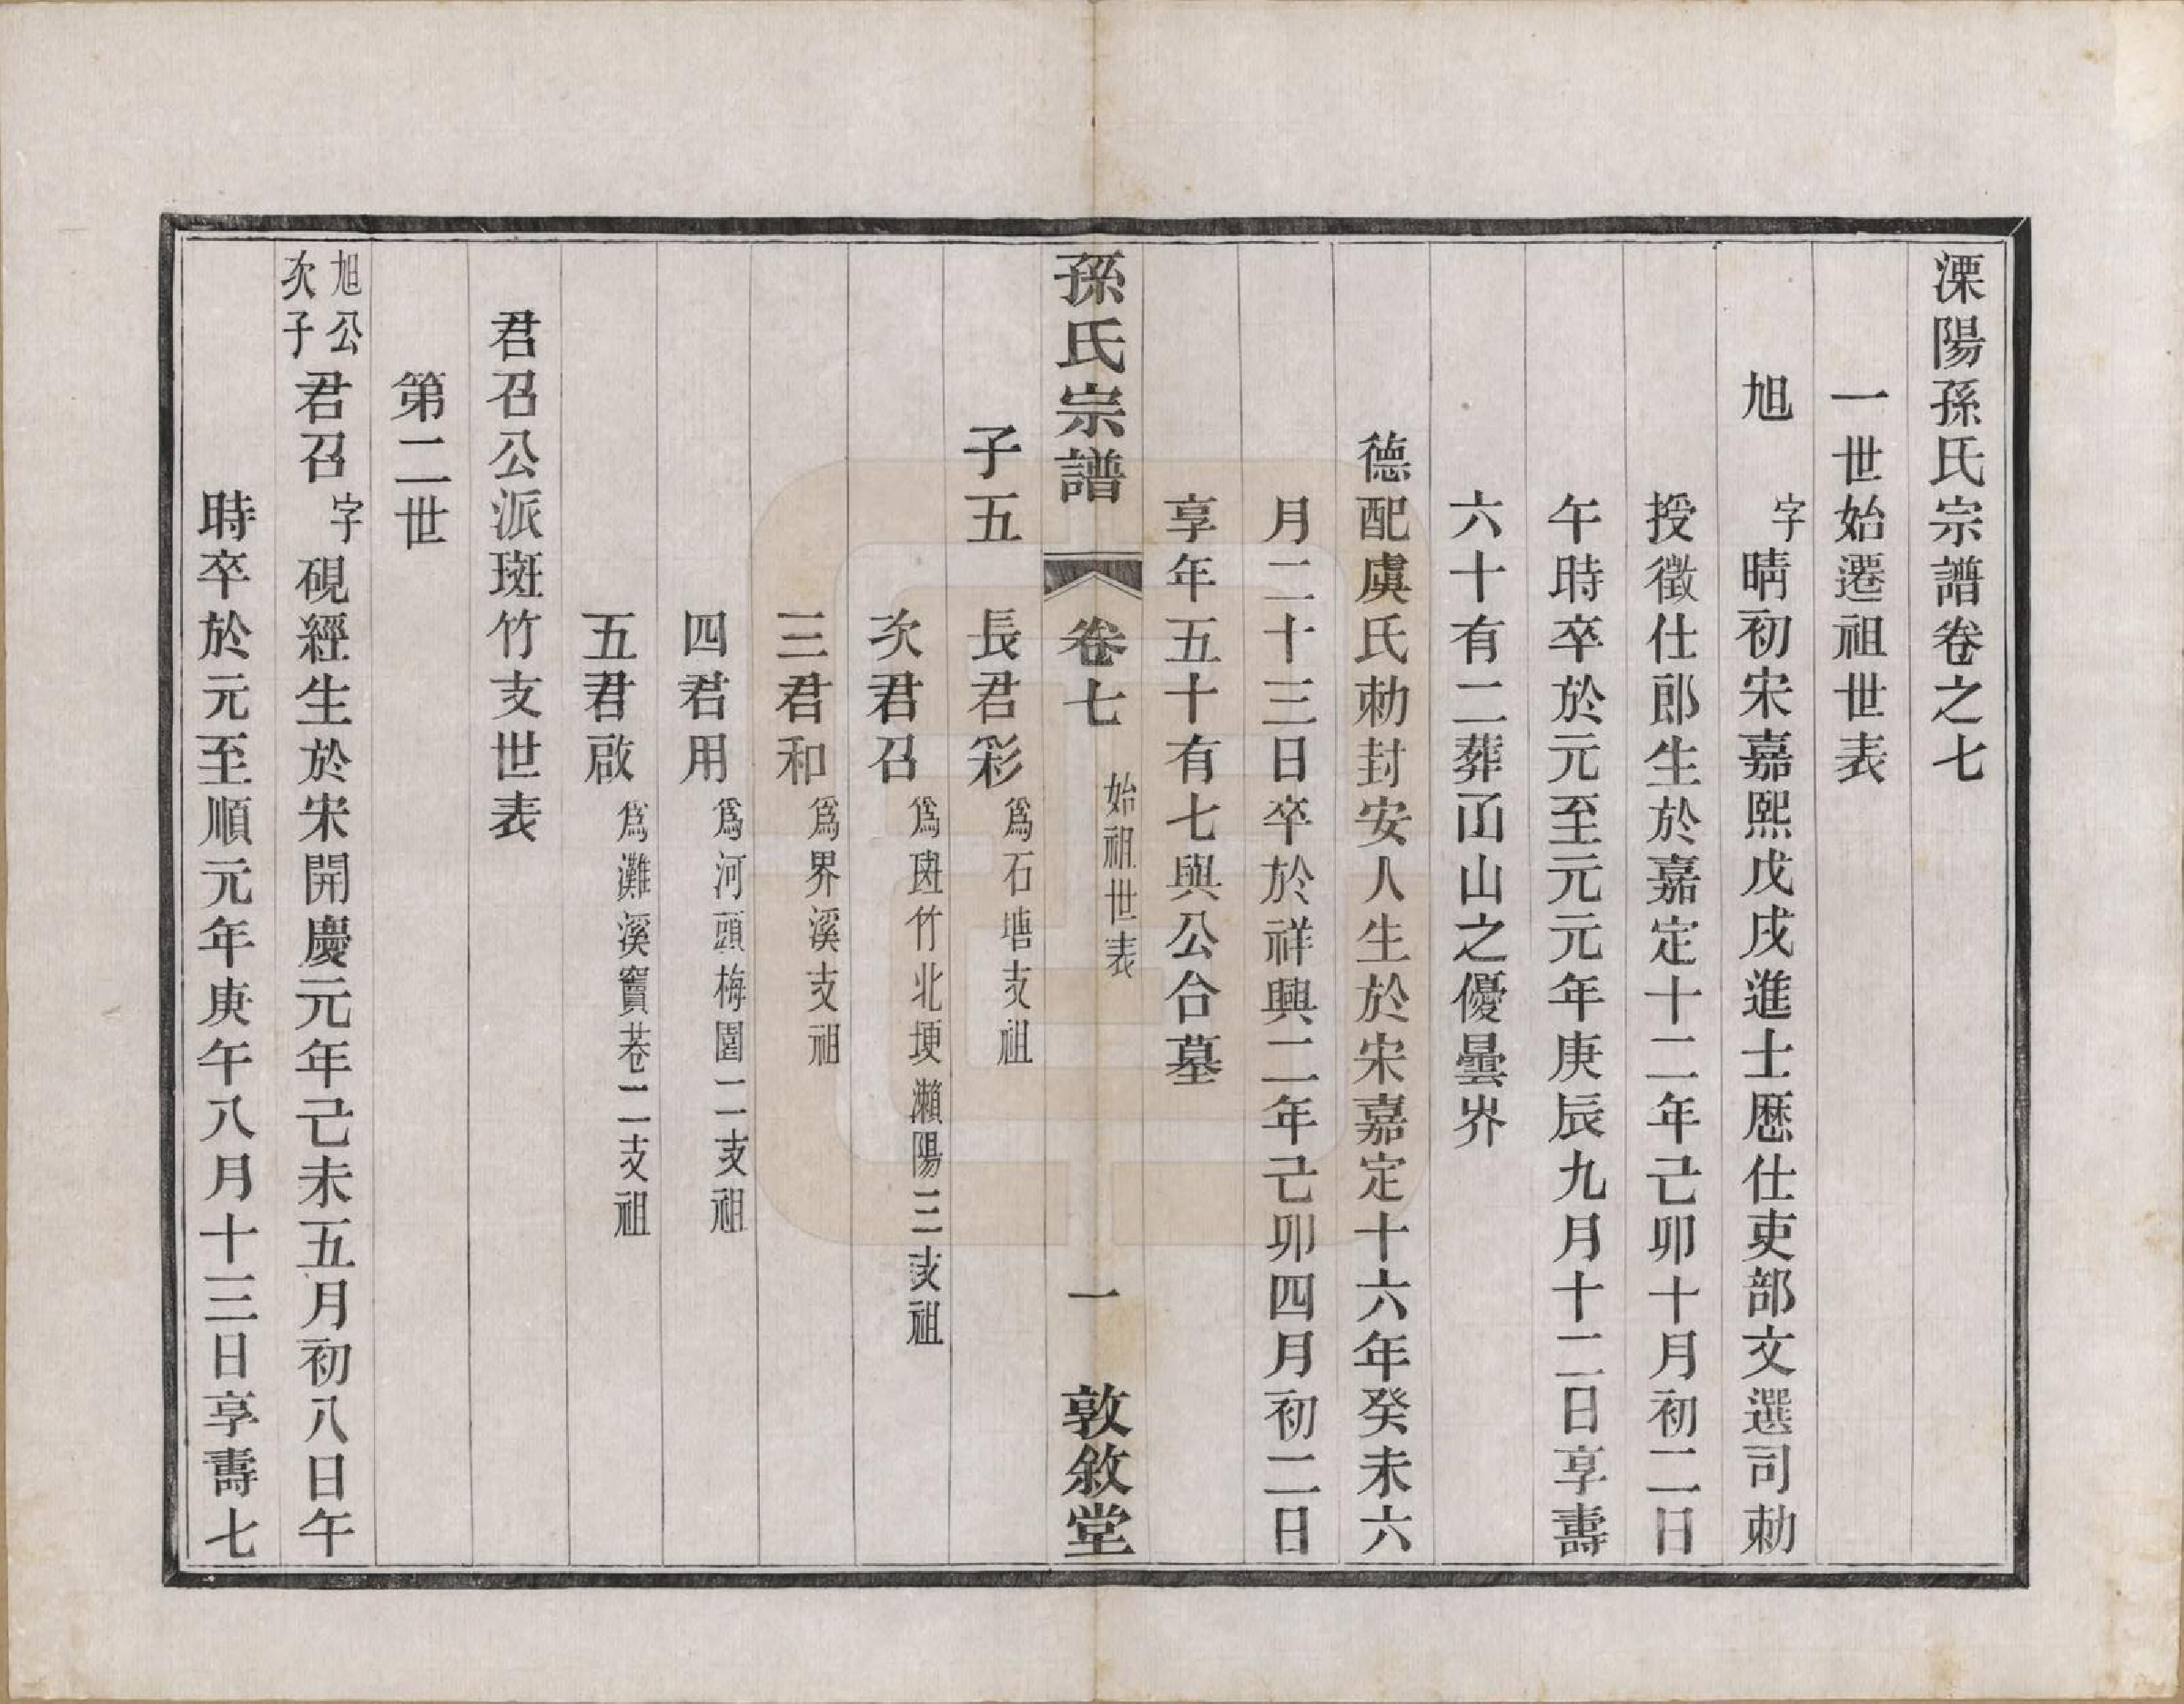 溧陽孫氏宗譜卷之七
一世始遷祖世表
旭 字晴初宋嘉熙戊戌進士歷仕吏部文選司勅
授徵仕郎生於嘉定十二年己卯十月初二日
午時卒於元至元元年庚辰九月十二日享壽
六十有二葬山之優曇界
德配虞氏勅封安人生於宋嘉定十六年癸未六
月二十三日卒於祥興二年己卯四月初二日
享年五十有七與公合墓
孫氏宗譜 卷七 始祖世表 一 敦敘堂
子五 長君彩 為石塘支祖
次君召 為斑竹北埂瀨陽三支祖
三君和 為界溪支祖
四君用 為河頭梅園二支祖
五君啟 為灘溪竇巷二支祖
君召公派斑竹支世表
第二世
旭公次子 君召 字硯經生於宋開慶元年己未五月初八日午
時卒於元至順元年庚午八月十三日享壽七